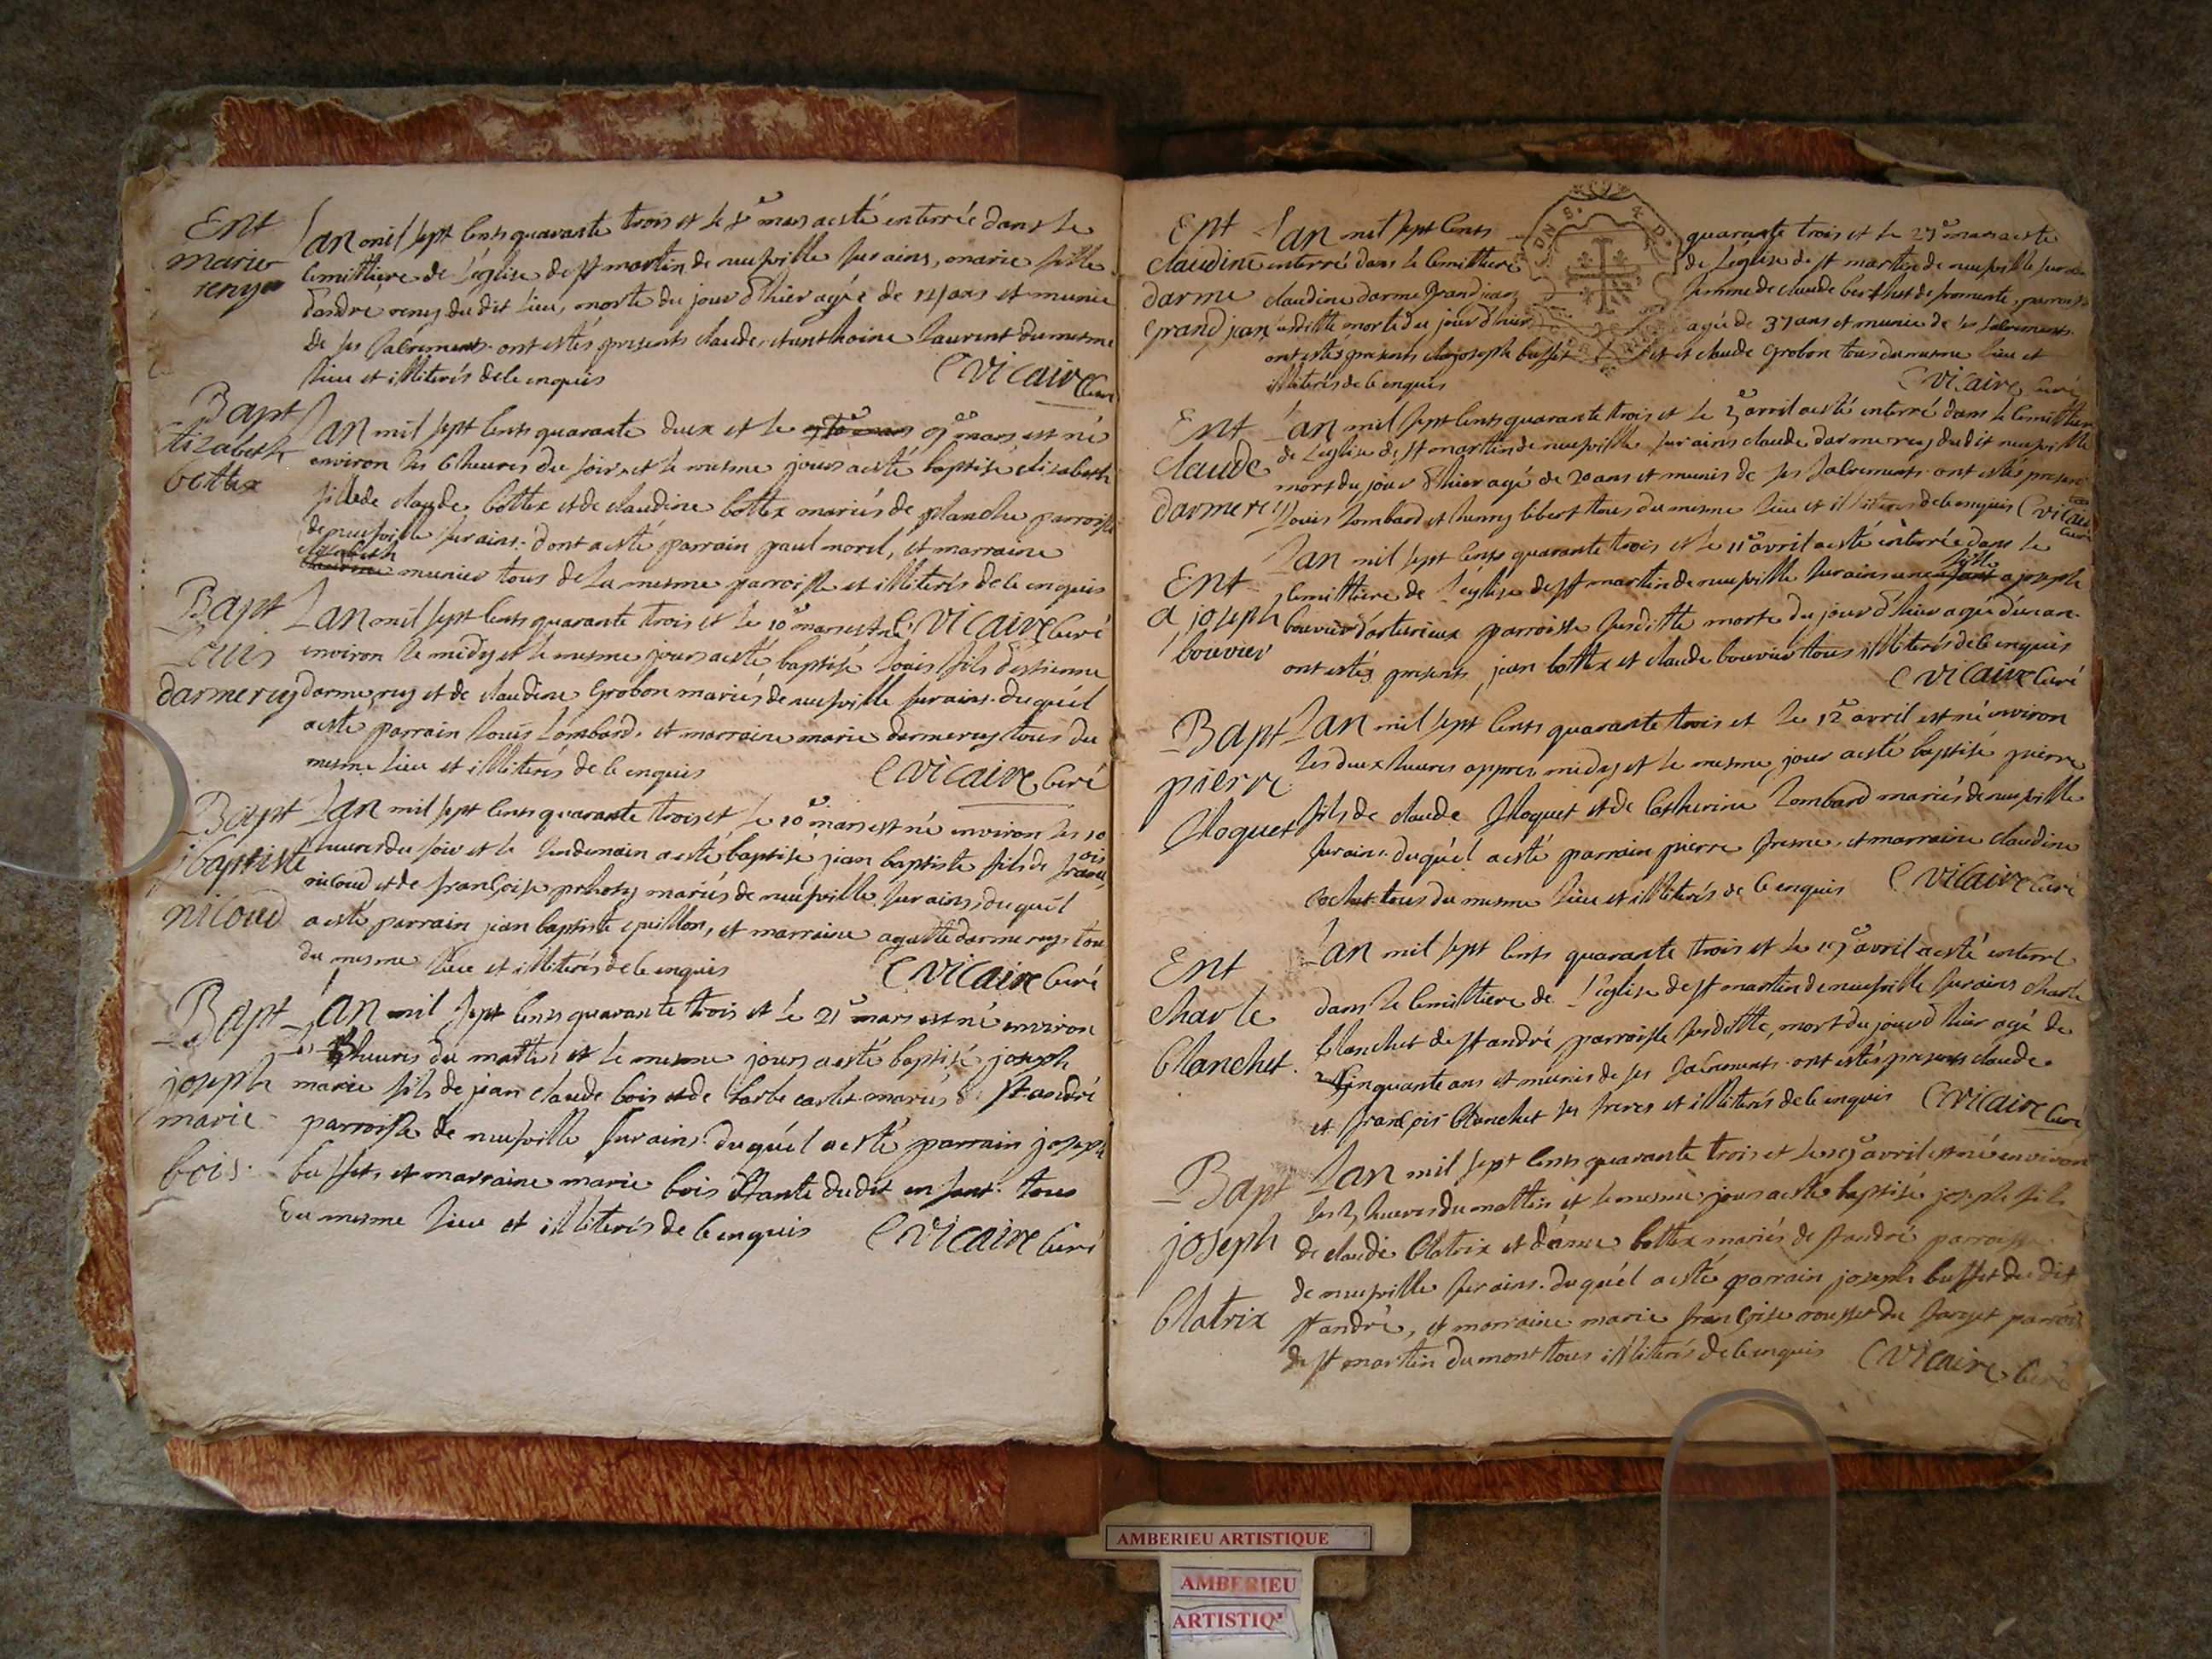 Ent
marie
reny
Lan mil sept cents quarante trois et le 8e mars a esté enterrée dans le
cemittiere de l'église de st martin de neufville sur ains, marie fille
d'andre reny du dit lieu, morte du jour d'hier agée de ans et munie
de ses sacrements ont estés presents claude, et anthoine laurent du mesme
lieu et illiterés de ce enquis C Vicaire Curé
Bapt
elizabeth
bottex
Lan mil sept cents quarante deux et le 9e mars est né
environ les 6 heures du soir, et le mesme jours a esté baptisé elizabeth
fille de claude bottex et de claudine bottex mariés de planche parroisse
de neufville sur ains. dont a esté parrain paul morel, et marraine
elizabeth
claudine munier tous de la mesme parroisse et illiterés de ce enquis
Bapt
Louis
darmerey
Lan mil sept cents quarante trois et le 10e mars est né C Vicaire Curé
environ le midy et le mesme jours a esté baptisé louis fils d'estienne
darmerey et de claudine Grobon mariés de neufville sur ains. duquél
a esté parrain louis Lombard, et marraine marie darmerey tous du
mesme lieu et illiterés de ce enquis C Vicaire Curé
Bapt
j baptiste
nicoud
Lan mil sept cents quarante trois et le 10e mars est né environ les 10
heures du soir et le lendemain a esté baptisé jean baptiste fils de francois
nicoud et de françoise mariés de neufville sur ains, duquél
a esté parrain jean baptiste, et marraine agatte darmerey tous
du mesme lieu et illiterés de ce enquis C Vicaire Curé
Bapt
joseph
marie
bois
Lan mil sept cents quarante trois et le 21e mars est né environ
les heures du mattin et le mesme jours a esté baptisé joseph
marie fils de jean claude bois et de barbe carlet mariés de st andré
parroisse de neufville sur ains. duquél a esté parrain joseph
buffet, et marraine marie bois tante du dit enfant. tous
du mesme lieu et illiterés de ce enquis C Vicaire Curé
Ent
claudine
darme
Grand jean
Lan mil sept cents quarante trois et le 27e mars a esté
interré dans le cemittiere de l'église de st martin de neufville sur
claudine darme Grandjean femme de claude berthet de fromente, parroisse
susditte morte du jour d'hier agée de 37 ans et munie de ses sacrements
ont estés presents joseph buffet et claude Grobon tous du mesme lieu et
illiterés de ce enquis C Vicaire Curé
Ent
Claude
darmerey
Lan mil sept cents quarante trois et le 5e avril a esté interré dans le cemittiere
de l'église de st martin de neufville sur ains claude darmerey du dit neufville
mort du jour d'hier agé de 20 ans et munis de ses sacrements ont estés presents
Louis Lombard et henry libert tous du mesme lieu et illiterés de ce enquis C Vicaire
Curé
Ent
a joseph
bouvier
Lan mil sept cents quarante trois et le 11e avril a esté interrée dans le
fille
cemittiere de l'église de st martin de neufville sur ains une enfant a joseph
bouvier parroisse susditte morte du jour d'hier agée d'un an
ont estés presents, jean bottex et claude bouvier tous illiterés de ce enquis
C Vicaire Curé
Bapt
pierre
Cloquet
Lan mil sept cents quarante trois et le 12e avril est né environ
les deux heures appres midy et le mesme jour a esté baptisé pierre
fils de claude Cloquet et de Catherine Lombard mariés de neufville
sur ains. duquél a esté parrain pierre fresne, et marraine claudine
cochet tous du mesme lieu et illiterés de ce enquis C Vicaire Curé
Ent
charle
blanchet.
Lan mil sept cents quarante trois et le avril a esté interré
dans le cemittiere de l'église de st martin de neufville sur ains charle
blanchet de st andré parroisse susditte, mort du jour d'hier agé de
cinquante ans et munis de ses sacrements. ont estés presents claude
et françois blanchet ses freres et illiterés de ce enquis C Vicaire Curé
Bapt
joseph
blatrix
Lan mil sept cents quarante trois et le avril est né environ
les heures du mattin et le mesme jours a esté baptisé joseph fils
de claude blatrix et d'anne bottex mariés de st andré parroisse
de neufville sur ains. duquél a esté parrain joseph buffet du dit
st andré, et marraine marie françoise rousset du parroisse
de st martin du mont tous illiterés de ce enquis C Vicaire Curé
AMBERIEU ARTISTIQUE
AMBERIEU
ARTISTIQ